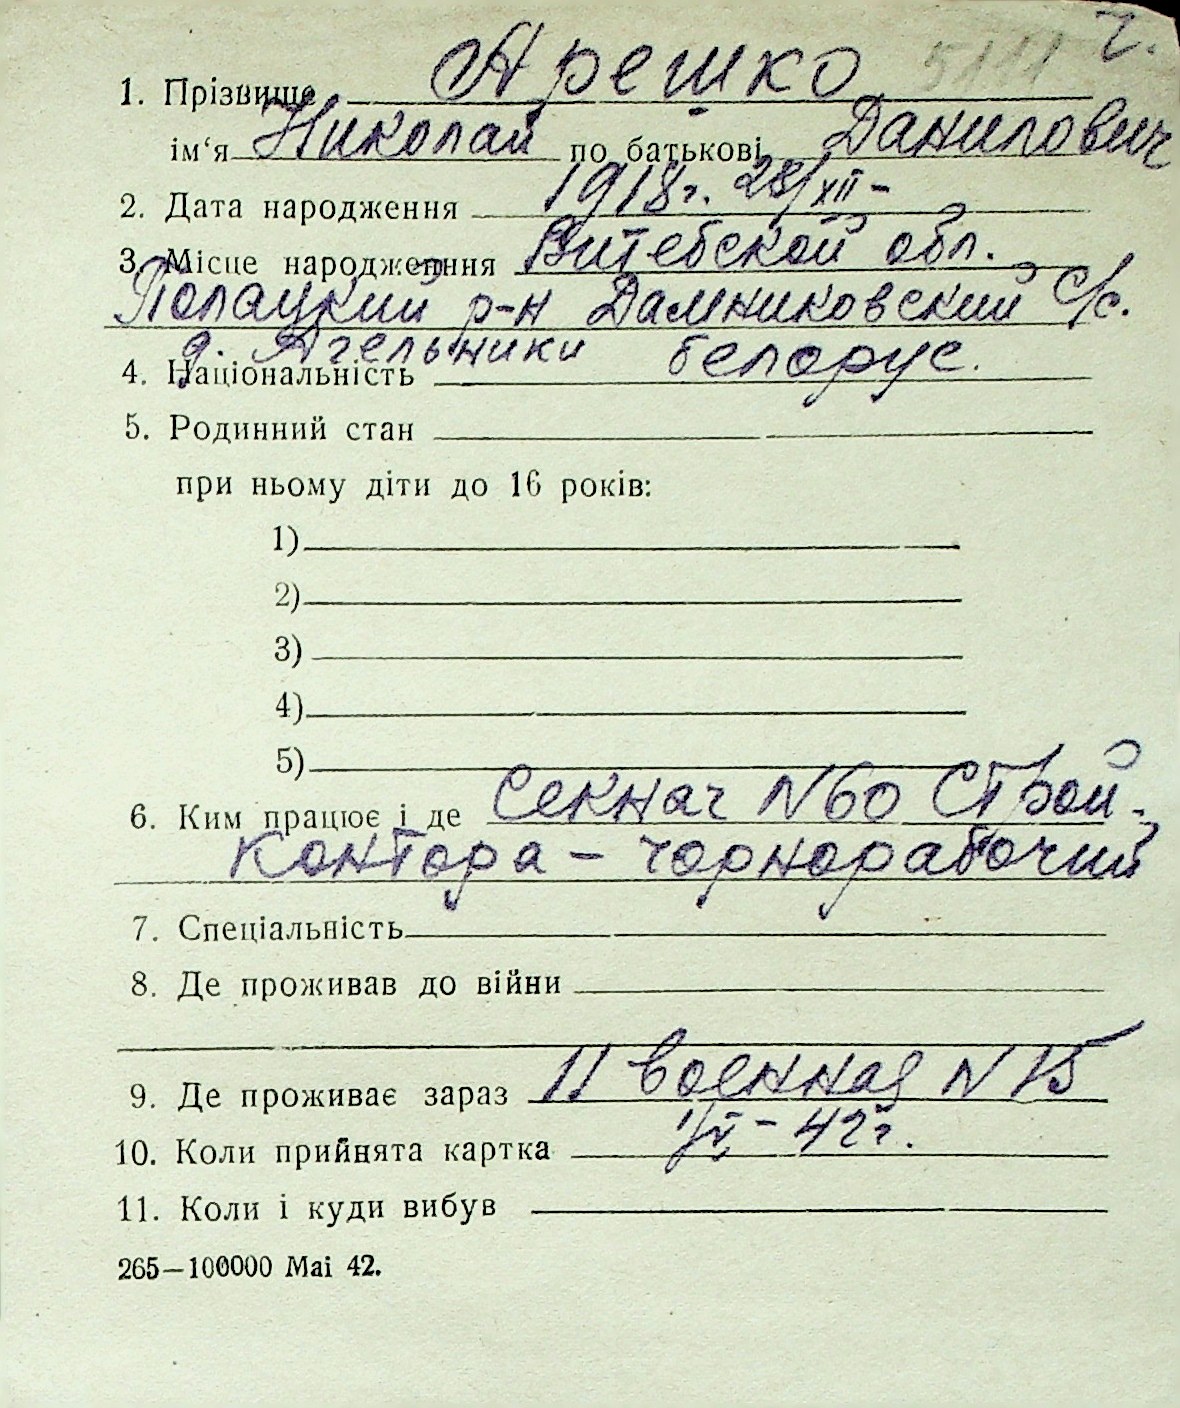 ч.
5111
1. Прізвище Арешко
ім‘я Николай по батькові Данилович
2. Дата народження 1918г. 28/XII –
3. Місце народження Витебской обл.
Полацкий р-н Дамниковский с/с.
д. Агельники
4. Національність белорус.
5. Родинний стан
при ньому діти до 16 років:
1)
2)
3)
4)
5)
6. Ким працює і де Секнач N 60 Строй-
контора – чорнорабочий
7. Спеціальність
8. Де проживав до війни
9. Де проживає зараз II военная N 15
10. Коли прийнята картка – 42г.
11. Коли і куди вибув
265—100000 Маі 42.